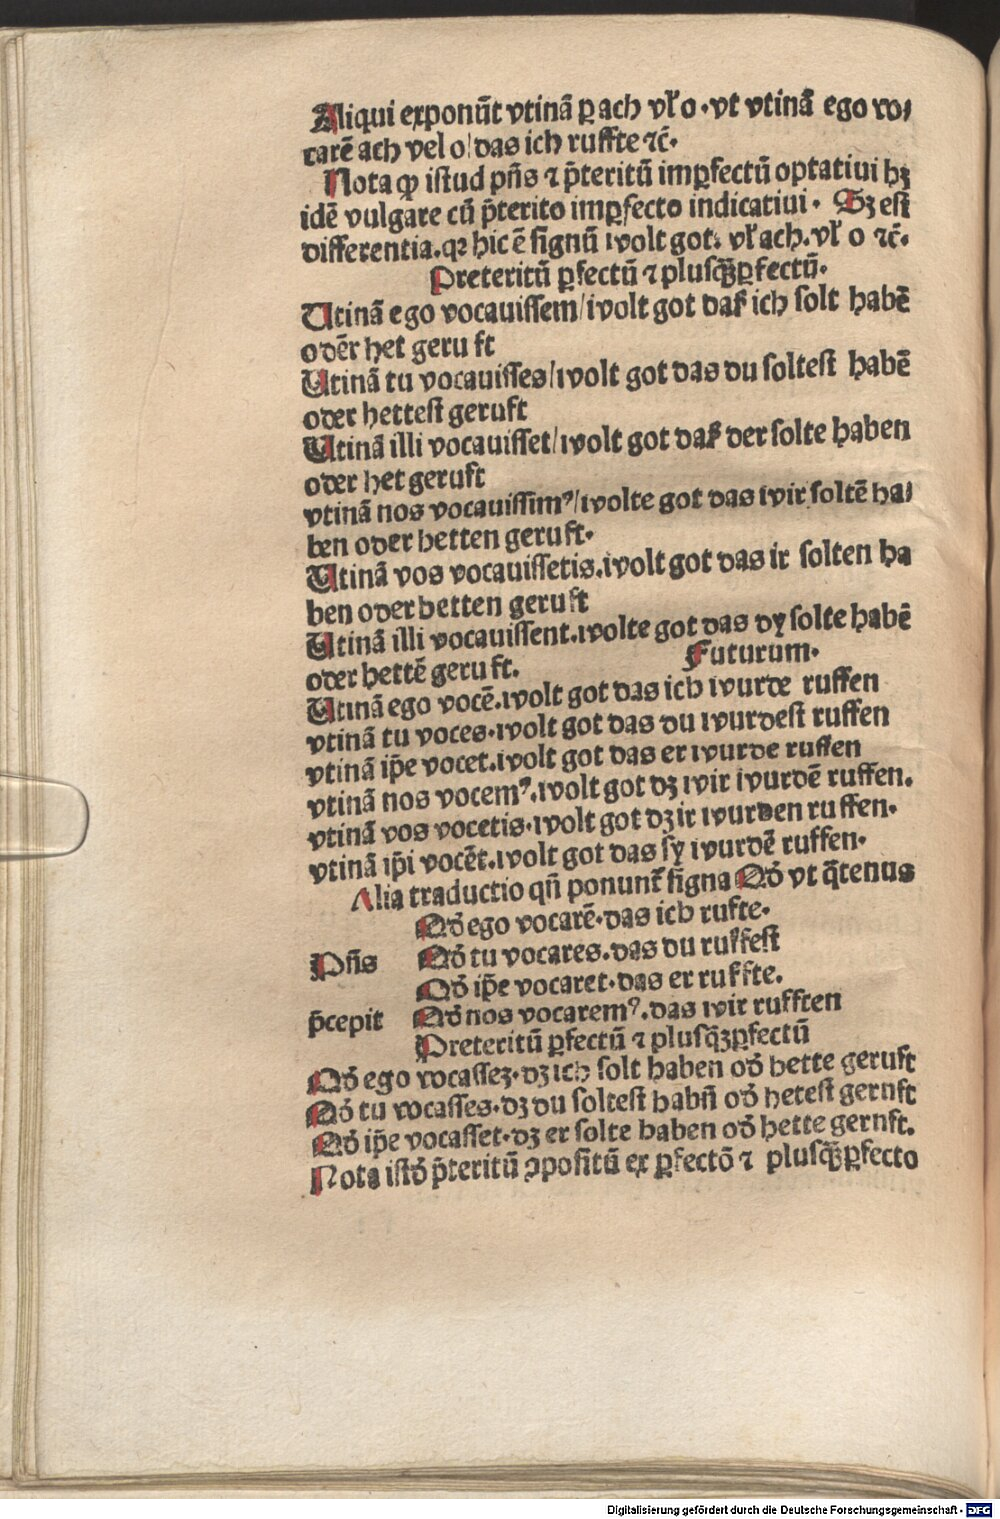 Aliqui exponūt vtinā ꝑ ach vł o · vt vtinā ego vo⸗
carē ach vel o / das ich ruffte ⁊c̄.
Nota ꝙ istud pn̄s ⁊ p̄teritū imꝑfectū optatiui hꝫ
idē vulgare cū p̄terito imꝑfecto indicatiui · Sꝫ est
differentia. qꝛ hic ē signū wolt got. vł ach. vł o ⁊c̄.
Preteritū ꝑfectū ⁊ plusqꝫꝑfectū.
Utinā ego vocauissem / wolt got daß ich solt habē
odēr het geruft
Utinā tu vocauisses / wolt got das du soltest habē
oder hettest geruft
Utinā illi vocauisset / wolt got daß der solte haben
oder het geruft
vtinā nos vocauissimꝰ / wolte got das wir soltē ha⸗
ben oder hetten geruft.
Utinā vos vocauissetis. wolt got das ir solten ha
ben oder hetten geruft
Utinā illi vocauissent. wolte got das dy solte habē
oder hettē geruft. Futurum.
Utinā ego vocē. wolt got das ich wurde ruffen
vtinā tu voces. wolt got das du wurdest ruffen
vtinā ip̄e vocet. wolt got das er wurde ruffen
vtinā nos vocemꝰ. wolt got dꝫ wir wurdē ruffen.
vtinā vos vocetis. wolt got dꝫ ir wurden ruffen.
vtinā ip̄i vocēt. wolt got das sy wurdē ruffen.
Alia traductio qn̄ ponunt᷑ signa Qð vt q̄tenus
Qð ego vocarē. das ich rufte.
Pn̄s Qð tu vocares. das du ruffest
Qð ip̄e vocaret. das er ruffte.
p̄cepit Qð nos vocaremꝰ. das wir rufften
Preteritū ꝑfectū ⁊ plusq̄ꝫꝑfectū
Qð ego vocasseꝫ. dꝫ ich solt haben oð hette geruft
Qð tu vocasses. dꝫ du soltest habn̄ oð hetest gernft
Qð ip̄e vocasset. dꝫ er solte haben oð hette gernft.
Nota istð p̄teritū ꝯpositū ex ꝑfectō ⁊ plusqꝫꝑfecto
Digitalisierung gefördert durch die Deutsche Forschungsgemeinschaft - DFG